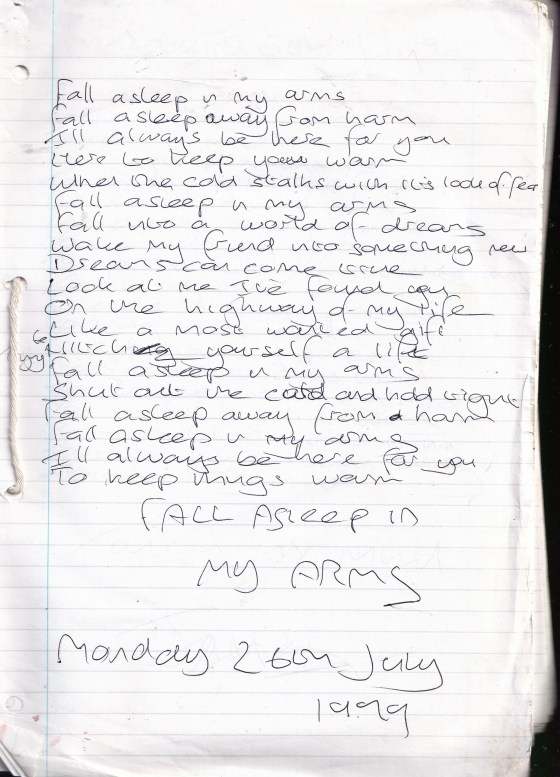 Fall asleep in my arms
Fall asleep away from harm
I'll always be here for you
Here to keep you warm
When the cold stalks with it's look of fear
Fall asleep in my arms
Fall into a world of dreams
Wake my friend into something new
Dreams can come true
Look at me I've found you
On the highway of my life
Like a most wanted gift
yourself a lift
Fall asleep in my arms
Shut out the cold and hold tight
Fall asleep away from harm
Fall asleep in my arms
I'll always be here for you
To keep things warm
FALL ASleep in
MY ARMS
Monday 26th July
1999